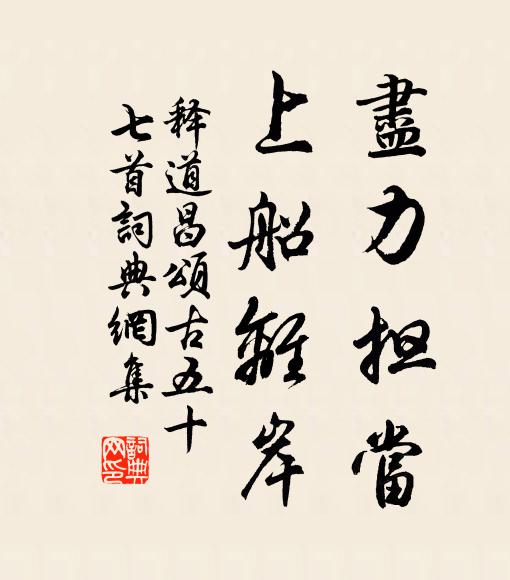 盡力担當
上船離岸
释道昌頌古五十
七首詞典網集
詞典
网印